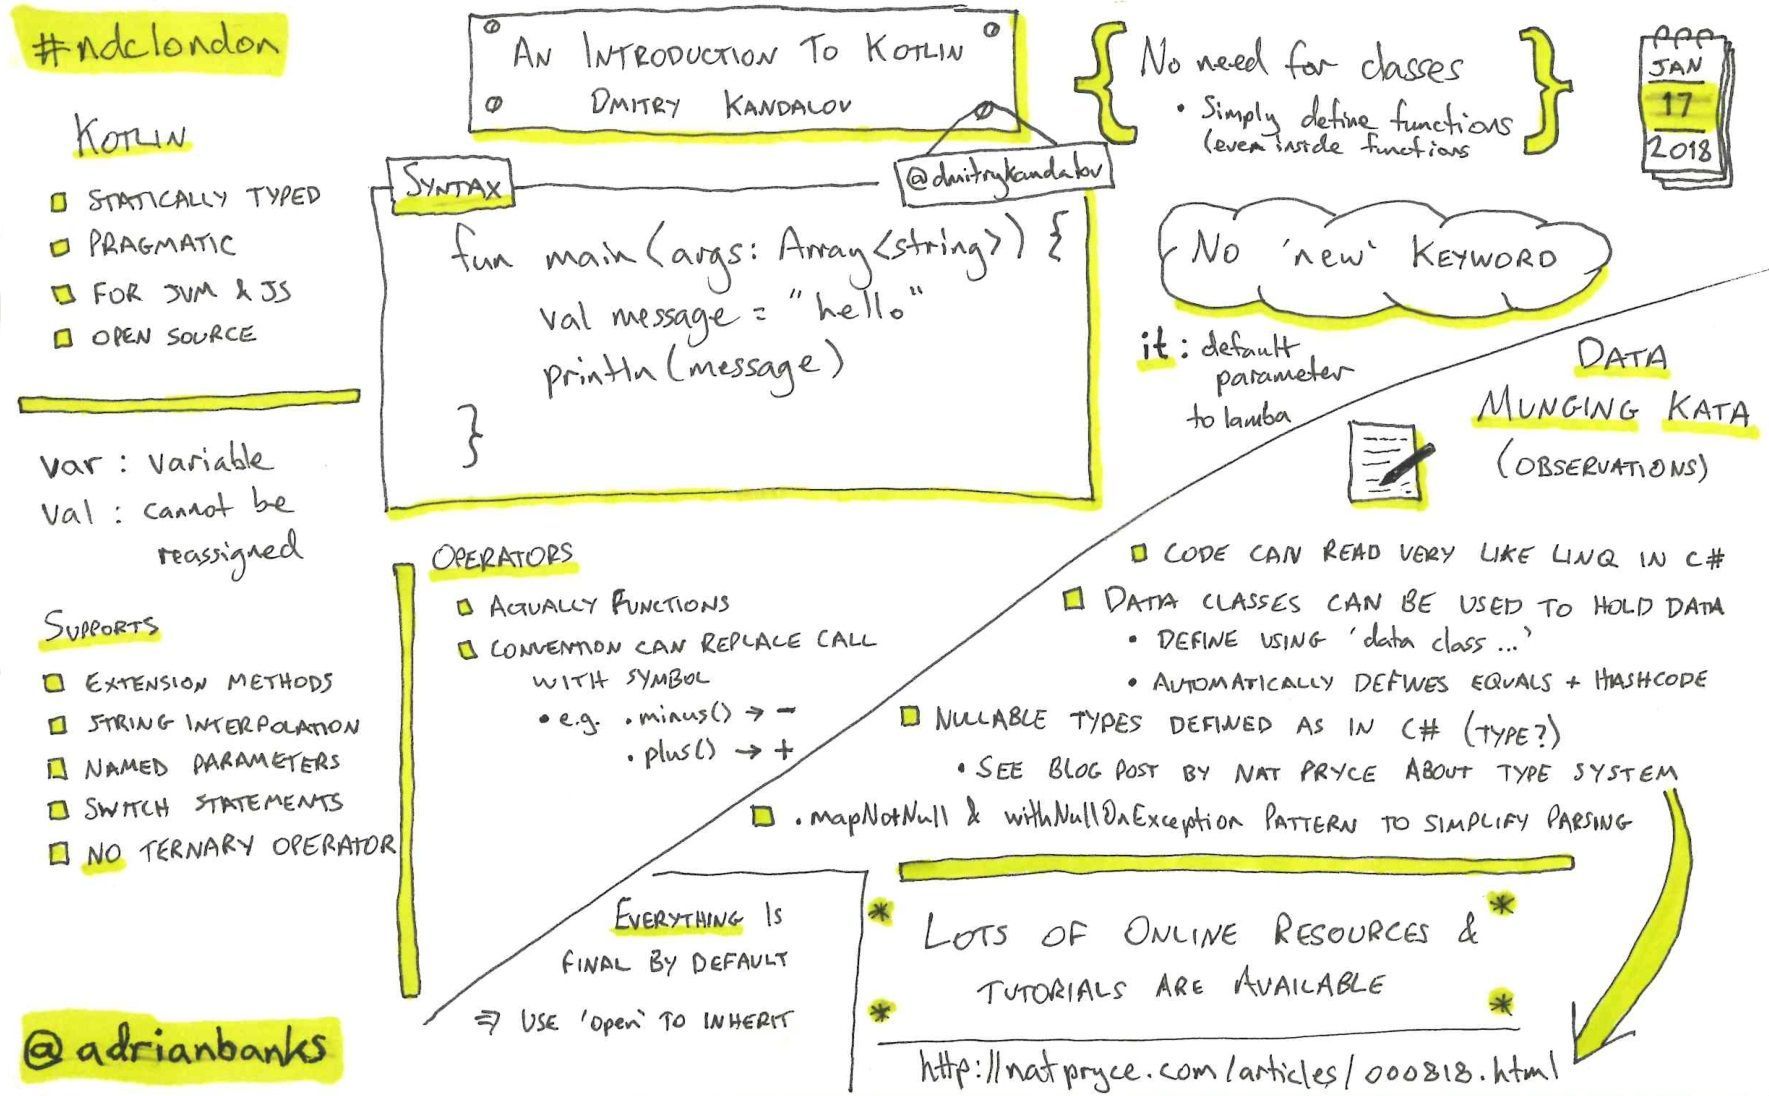 #ndclondon
AN INTRODUCTION TO KOTLIN
DMITRY KANDALOV
@dmitrykandalov
No need for classes
• Simply define functions
(even inside functions
JAN
17
2018
KOTLIN
STATICALLY TYPED
PRAGMATIC
FOR JVM & JS
OPEN SOURCE
var : variable
val : cannot be
reassigned
SUPPORTS
EXTENSION METHODS
STRING INTERPOLATION
NAMED PARAMETERS
SWITCH STATEMENTS
NO TERNARY OPERATOR
@adrianbanks
SYNTAX
fun main(args: Array<string>) {
val message = "hello"
println(message)
}
NO 'new' KEYWORD
it : default
parameter
to lamba
OPERATORS
ACTUALLY FUNCTIONS
CONVENTION CAN REPLACE CALL
WITH SYMBOL
• e.g. .minus() → -
.plus() → +
DATA
MUNGING KATA
(OBSERVATIONS)
CODE CAN READ VERY LIKE LINQ IN C#
DATA CLASSES CAN BE USED TO HOLD DATA
• DEFINE USING 'data class ...'
• AUTOMATICALLY DEFINES EQUALS + HASHCODE
NULLABLE TYPES DEFINED AS IN C# (TYPE?)
• SEE BLOG POST BY NAT PRYCE ABOUT TYPE SYSTEM
.mapNotNull & withNullOnException PATTERN TO SIMPLIFY PARSING
EVERYTHING IS
FINAL BY DEFAULT
⇒ USE 'open' TO INHERIT
* LOTS OF ONLINE RESOURCES & *
* TUTORIALS ARE AVAILABLE *
http://natpryce.com/articles/000818.html